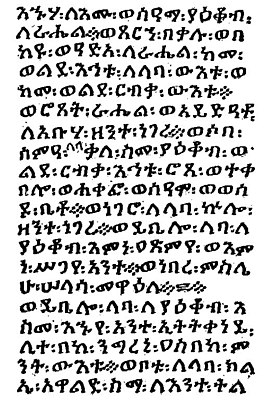 አኁሃ፡ለእሙ፡ወሰዓማ፡ያዕቆብ፡
ለራሔል።ወጸርኀ፡በቃሉ፡ወበ
ከየ፡ለራሔል፡ከመ፡
ወልደ፡እኅቱ፡ለላባ፡ውእቱ፡ወ
ከመ፡ወልደ፡ርብቃ፡ውእቱ።
ወሮጸት፡ራሔል፡ወአይድዓቶ፡
ለአቡሃ፡ዘንተ፡ነገረ።ወሶበ፡
ሰምዓ፡ላባ፡ቃለ፡ስሙ፡ያዕቆብ፡ወ
ልደ፡ርብቃ፡እኅቱ፡ሮጸ፡ወተቀ
በሎ፡ወሐቀፎ፡ወሰዓሞ፡ወወሰ
ዶ፡ቤቶ።ወነገሮ፡ለላባ፡ኵሎ፡
ዘንተ፡ነገረ።ወይቤሎ፡ላባ፡ለ
ያዕቆብ፡እምነ፡ዐጽምየ፡ወእም
ነ፡ሥጋየ፡አንተ።ወነበረ፡ምስሌ
ሁ፡ሠላሳ፡መዋዕለ።
ወይቤሎ፡ላባ፡ለያዕቆብ፡እ
ስመ፡እኁየ፡አንተ፡ኢትትቀነይ፡
ሊተ፡በከ፡ንግረኒ፡ዐስበከ፡ም
ንት፡ውእቱ።ወቦቱ፡ለላባ፡ክል
ኤ፡አዋልድ፡ስማ፡ለእንተ፡ትል